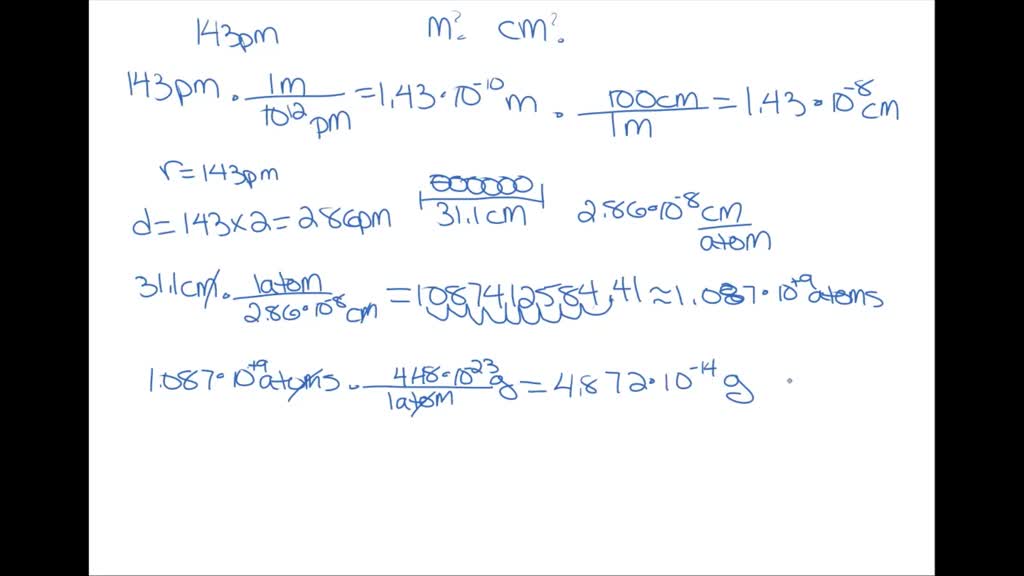 143pm m? cm?
143pm · 1m / 10^12 pm = 1.43 · 10^-10 m · 100cm / 1m = 1.43 · 10^-8 cm
r = 143pm
d = 143 × 2 = 286pm 31.1 cm 2.86 · 10^-8 cm / atom
31.1cm · 1atom / 2.86 · 10^-8 cm = 1087412584,41 ≈ 1.087 · 10^+9 atoms
1.087 · 10^+9 atoms · 4.48 · 10^-23 g / 1atom = 4.872 · 10^-14 g